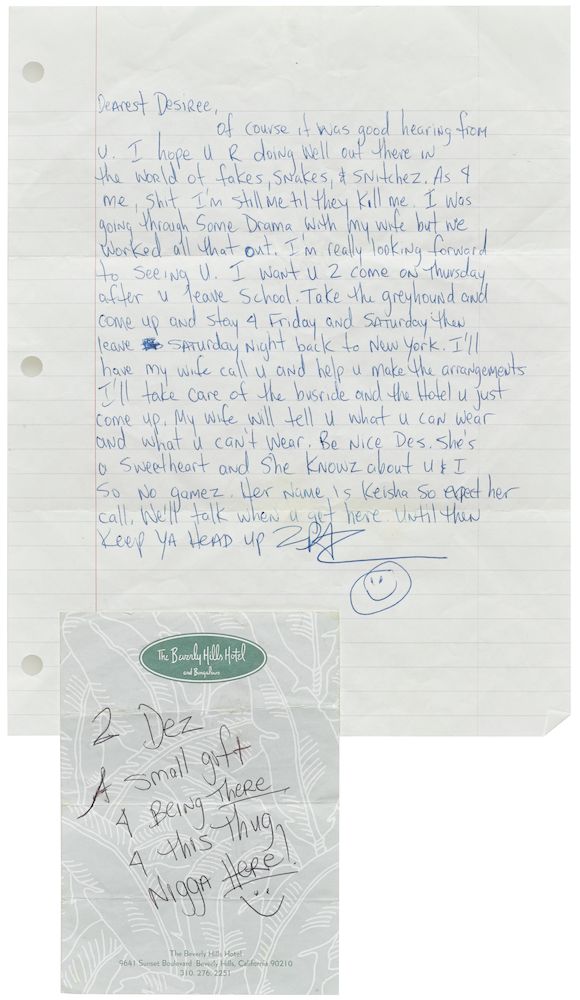 Dearest Desiree,
of course it was good hearing from
U. I hope u R doing well out there in
the world of fakes, snakes, & snitchez. As 4
me, shit I'm still me til they kill me. I was
going through some Drama with my wife but we
worked all that out. I'm really looking forward
to seeing U. I want u 2 come on Thursday
after u leave school. Take the greyhound and
come up and stay 4 Friday and Saturday then
leave Saturday Night back to New York. I'll
have my wife call u and help u make the arrangements
I'll take care of the busride and the Hotel u just
come up. My wife will tell u what u can wear
and what u can't wear. Be Nice Des. She's
a sweetheart and she knowz about u & I
so no gamez. Her name is Keisha so expect her
call. We'll talk when u get here. Until then
Keep YA HEAD up
The Beverly Hills Hotel
and Bungalows
2 Dez
A small gift
4 Being There
4 this thug
Nigga Here!
The Beverly Hills Hotel
9641 Sunset Boulevard Beverly Hills, California 90210
310. 276. 2251